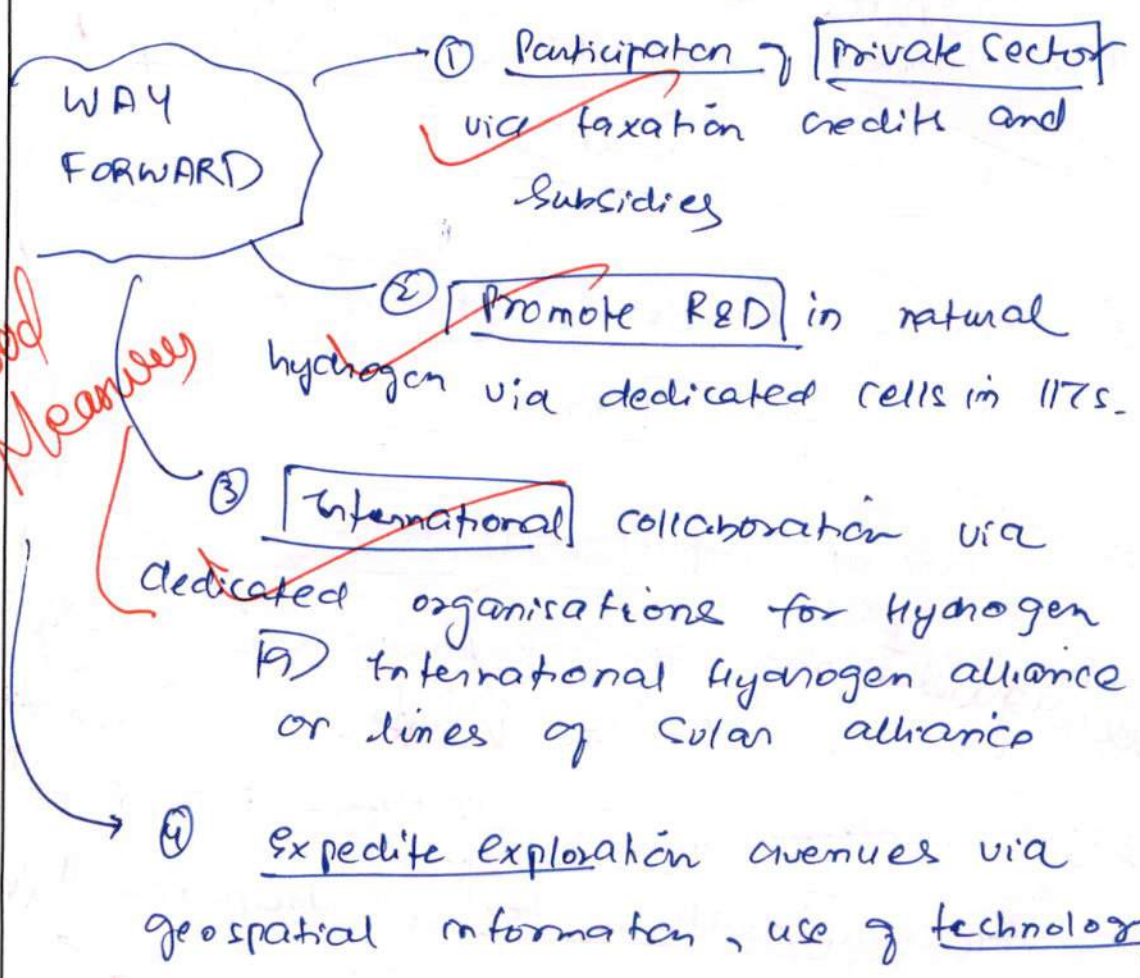 WAY
FORWARD
① Participaton of Private Sector
via taxation credits and
Subsidies
② Promote R&D in natural
hydrogen via dedicated cells in IITs.
Measures
③ International collaboration via
dedicated organisations for Hydrogen
International Hydrogen alliance
or lines of Solar alliance
④ Expedite exploration avenues via
geospatial informaton, use of technolog